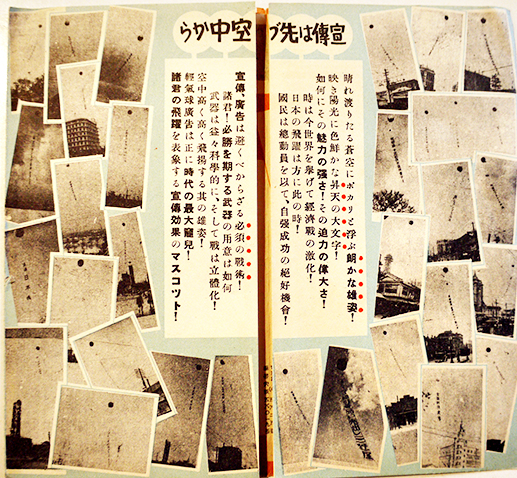 宣傳は先づ空中から
晴れ渡りたる蒼空にポカリと浮ぶ朗かな雄姿！
映き陽光に色鮮かな昇天の大文字！
如何にその魅力の强さ！その迫力の偉大さ！
時は今世界を擧げて經濟戰の激化！
日本の飛躍は方に此の時！
國民は總動員を以て、自强成功の絕好機會！
宣傳、廣告は避くべからざる必須の戰術！
諸君！必勝を期する武器の用意は如何
武器は益々科學的に、そして戰は立體化！
空中高く高く飛揚する其の雄姿！
輕氣球廣告は正に時代の最大寵兒！
諸君の飛躍を表象する宣傳効果のマスコツト！